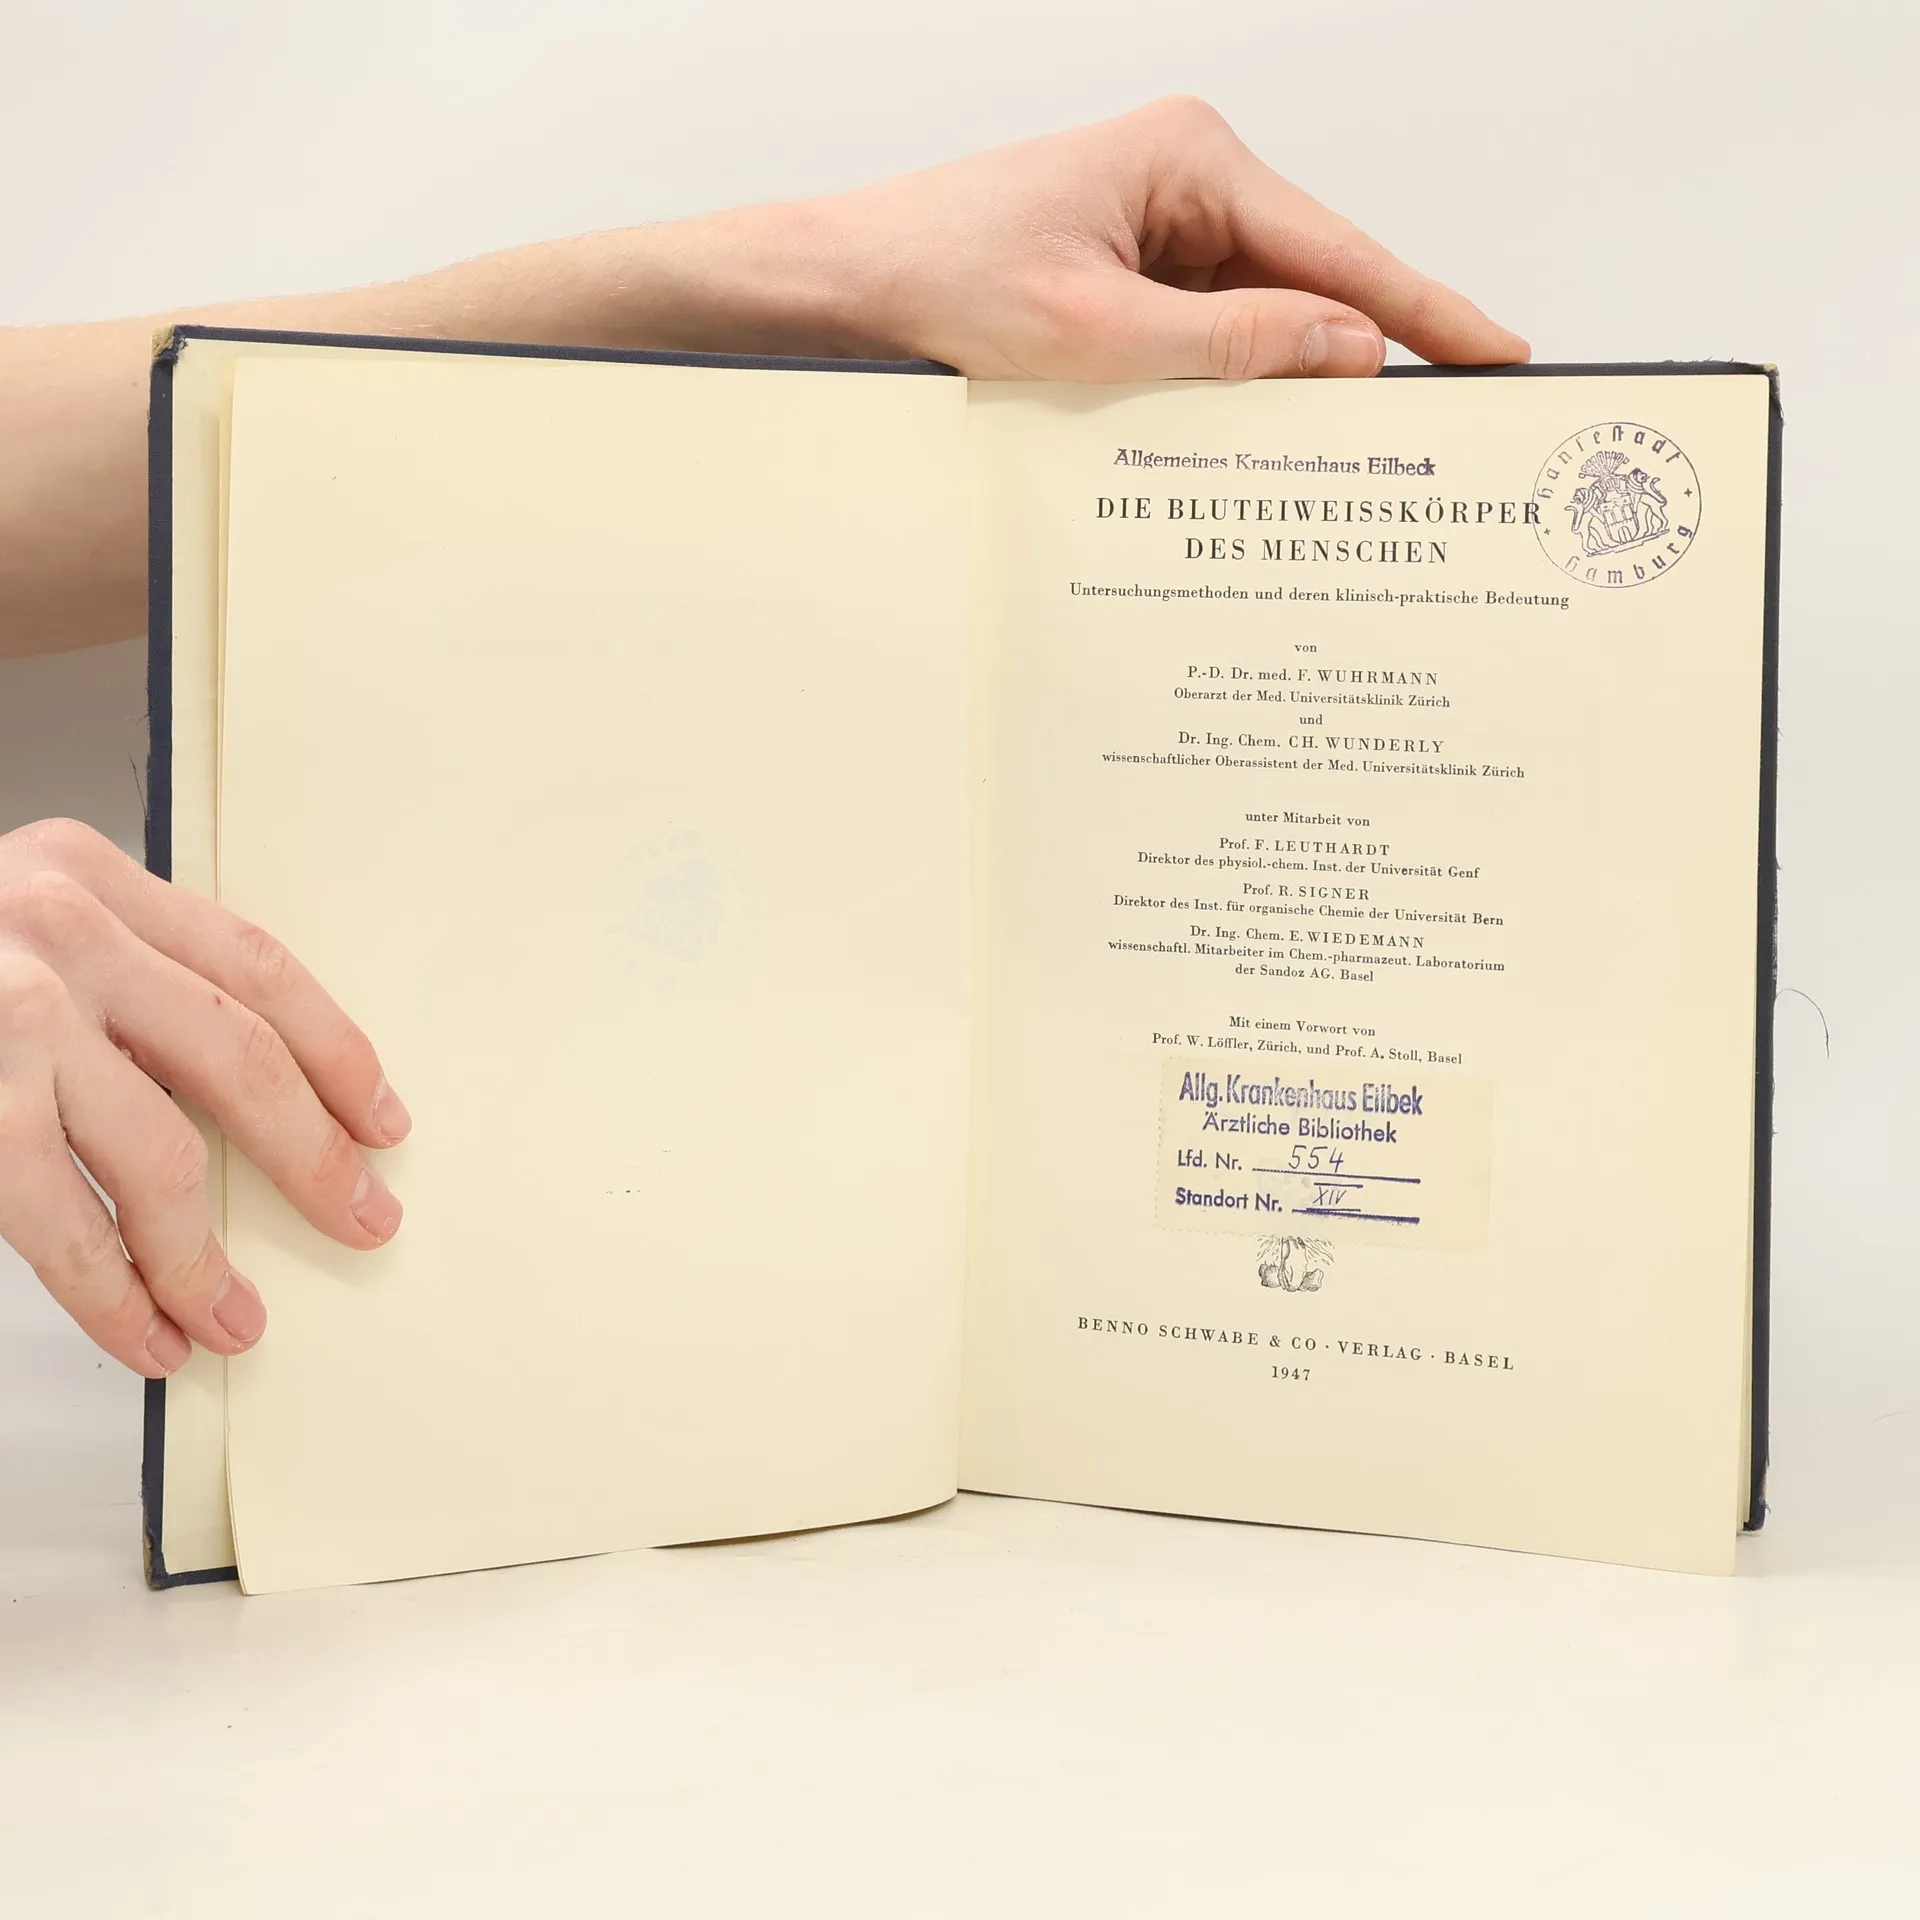 Allgemeines Krankenhaus Eilbeck
Hansestadt Hamburg
DIE BLUTEIWEISSKÖRPER
DES MENSCHEN
Untersuchungsmethoden und deren klinisch-praktische Bedeutung
von
P.-D. Dr. med. F. WUHRMANN
Oberarzt der Med. Universitätsklinik Zürich
und
Dr. Ing. Chem. CH. WUNDERLY
wissenschaftlicher Oberassistent der Med. Universitätsklinik Zürich
unter Mitarbeit von
Prof. F. LEUTHARDT
Direktor des physiol.-chem. Inst. der Universität Genf
Prof. R. SIGNER
Direktor des Inst. für organische Chemie der Universität Bern
Dr. Ing. Chem. E. WIEDEMANN
wissenschaftl. Mitarbeiter im Chem.-pharmazeut. Laboratorium
der Sandoz AG. Basel
Mit einem Vorwort von
Prof. W. Löffler, Zürich, und Prof. A. Stoll, Basel
Allg. Krankenhaus Eilbek
Ärztliche Bibliothek
Lfd. Nr. 554
Standort Nr. XIV
BENNO SCHWABE & CO · VERLAG · BASEL
1947